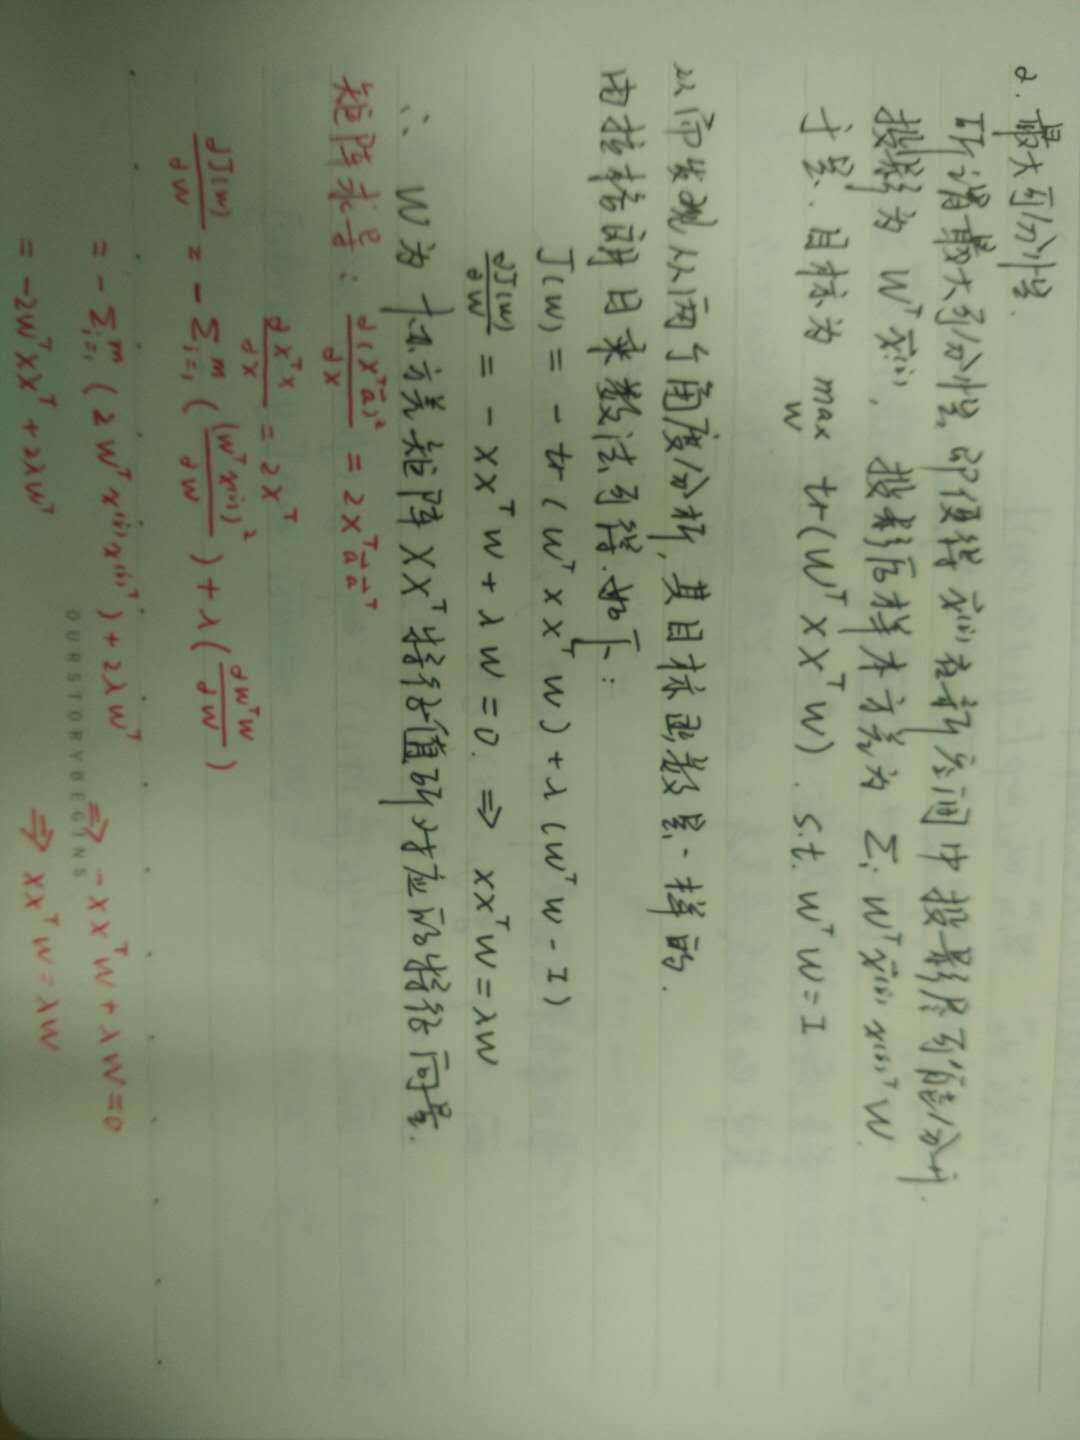 2. 最大可分性.
所谓最大可分性, 即使得 x⃗⁽ⁱ⁾ 在新空间中投影尽可能分开.
投影为 Wᵀx⃗⁽ⁱ⁾, 投影后样本方差为 Σᵢ Wᵀx⃗⁽ⁱ⁾x⁽ⁱ⁾ᵀW
于是, 目标为 max_W tr(WᵀXXᵀW). s.t. WᵀW=I
从而发现从两个角度分析, 其目标函数是一样的.
由拉格朗日乘数法可得. 如下:
J(W) = -tr(WᵀXXᵀW) + λ(WᵀW - I)
∂J(W)/∂W = -XXᵀW + λW = 0. ⇒ XXᵀW = λW
∴ W为协方差矩阵 XXᵀ 特征值所对应的特征向量.
矩阵求导: ∂(xᵀa⃗)²/∂x = 2xᵀa⃗a⃗ᵀ
∂xᵀx/∂x = 2xᵀ
∂J(W)/∂W = -Σᵢ₌₁ᵐ ((Wᵀx⁽ⁱ⁾)²/∂W) + λ(∂WᵀW/∂W)
= -Σᵢ₌₁ᵐ (2Wᵀx⁽ⁱ⁾x⁽ⁱ⁾ᵀ) + 2λWᵀ ⇒ -XXᵀW + λW = 0
OURSTORYBEGINS
= -2WᵀXXᵀ + 2λWᵀ ⇒ XXᵀW = λW